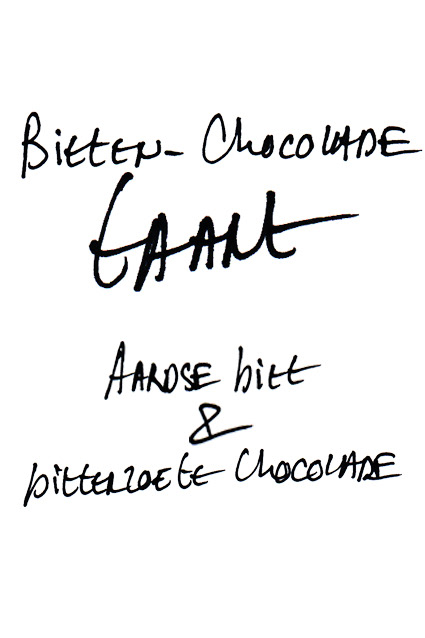 BiEtEN- CHOCOLADE
tAARt
AARDSE biEt
&
bittERZOEtE CHOCOLADE